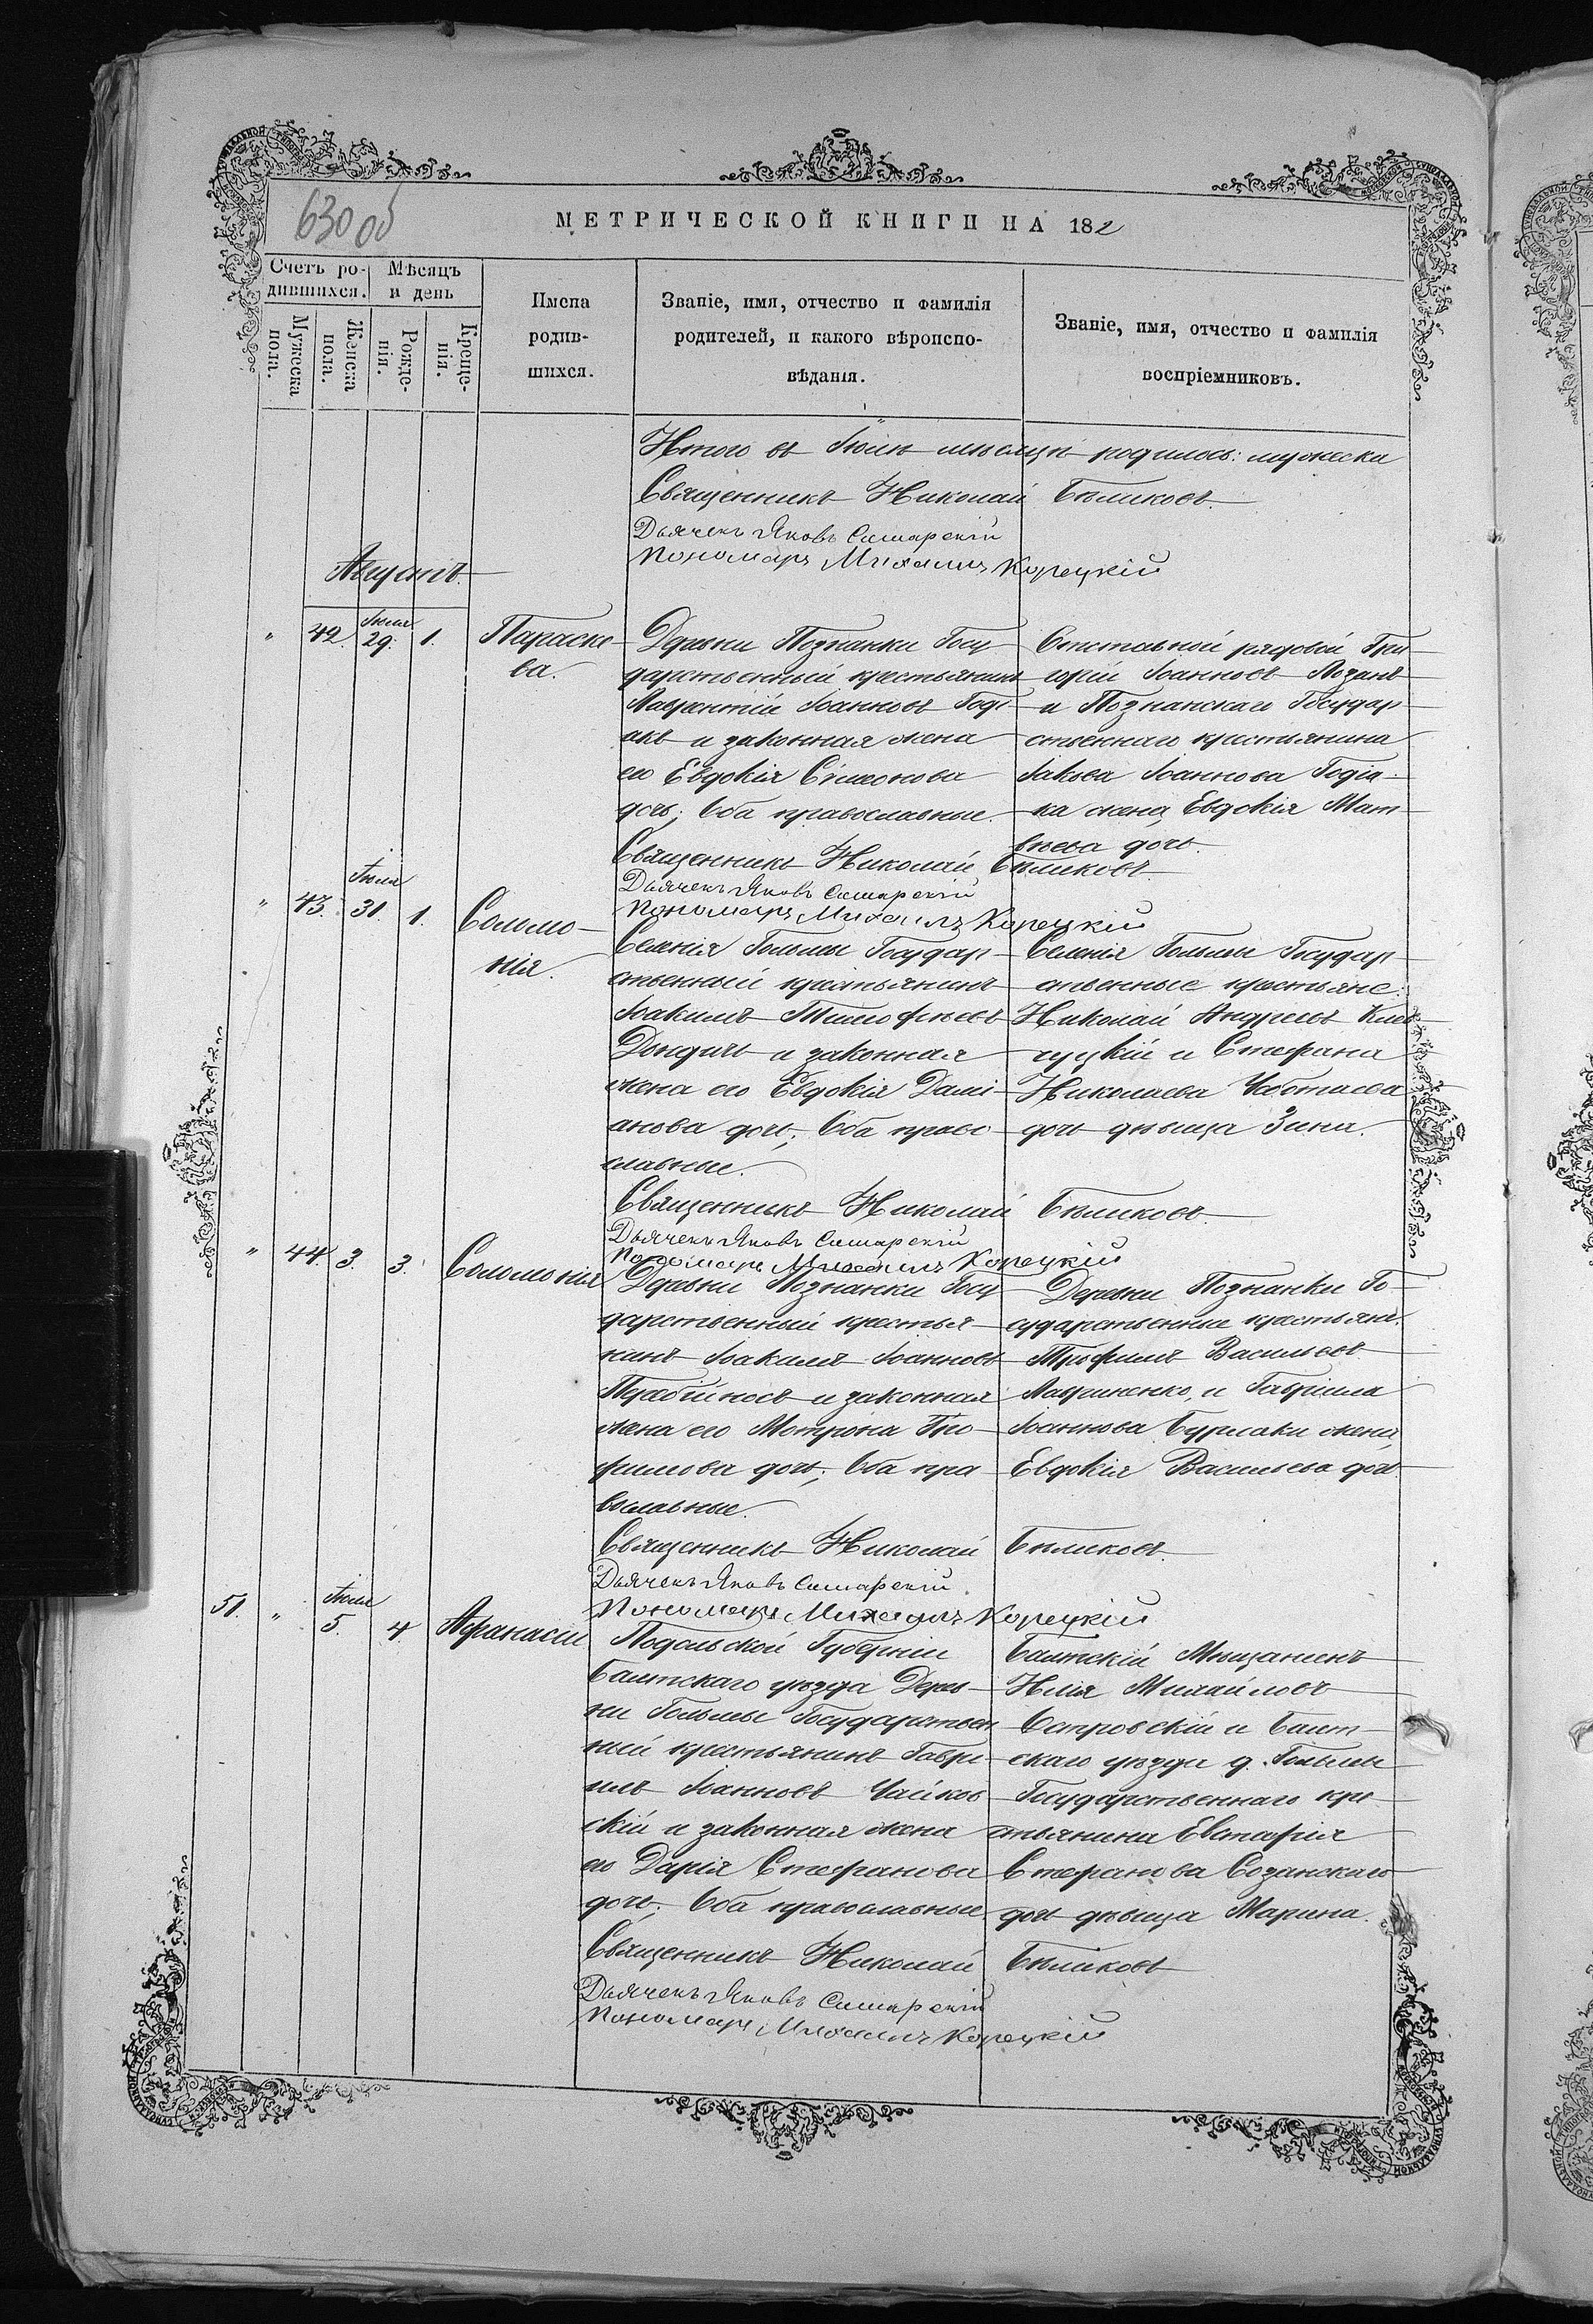 630 об
МЕТРИЧЕСКОЙ КНИГИ НА 182
Счетъ ро-
дившихся.
Мѣсяцъ
и день
Мужеска
пола.
Женска
пола.
Рожде-
нія.
Креще-
нія.
Имена
родив-
шихся.
Званіе, имя, отчество и фамилія
родителей, и какого вѣроиспо-
вѣданія.
Званіе, имя, отчество и фамилія
воспріемниковъ.
Итого въ Іюлѣ мѣсяцѣ родилось: мужеска
Священникъ Николай Бѣликовъ.
Дьячекъ Яковъ Самарскій
Пономарь Михаилъ Корецкій
Августъ.
" 42. Іюля 29. 1.
Параске-
ва.
Деревни Познанки Госу-
дарственный крестьянинъ
Лаврентій Іоанновъ Годі-
акъ и законная жена
его Евдокія Сімеонова
дочь; Оба православные.
Отставной рядовой Гри-
горій Іоанновъ Лозанъ
и Познанскаго Государ-
ственнаго крестьянина
Іакова Іоаннова Годія-
ка жена, Евдокія Мат-
вѣева дочь.
Священникъ Николай Бѣликовъ.
Дьячекъ Яковъ Самарскій
Пономарь Михаилъ Корецкій
" 43. Іюля 31. 1.
Соломо-
нія.
Селенія Гольмы Государ-
ственный крестьянинъ
Іоакимъ Тимофѣевъ
Дындичъ и законная
жена его Евдокія Дамі-
анова дочь; Оба право-
славные.
Селенія Гольмы Государ-
ственные крестьяне:
Николай Андреевъ
и Стефана
Николаева
дочь дѣвица Зина.
Священникъ Николай Бѣликовъ.
Дьячекъ Яковъ Самарскій
Пономарь Михаилъ Корецкій
" 44. 3. 3.
Соломонія
Деревни Познанки Госу-
дарственный крестья-
нинъ Іоакимъ Іоанновъ
и законная
жена его Мотрона Тро-
фимова дочь; Оба пра-
вославные.
Деревни Познанки Го-
сударственные крестьяне:
Трофимъ Васильевъ
Лавриненко, и Гавріила
Іоаннова Бурлаки жена,
Евдокія Васильева дочь
Священникъ Николай Бѣликовъ.
Дьячекъ Яковъ Самарскій
Пономарь Михаилъ Корецкій
51. " Іюля 5. 4.
Афанасій
Подольской Губерніи
Балтскаго уѣзда Дерев-
ни Гольмы Государствен-
ный крестьянинъ Гаврі-
илъ Іоанновъ Чайков-
скій и законная жена
его Дарія Стефанова
дочь; Оба православные.
Балтскій Мѣщанинъ
Илія Михайловъ
Островскій и Балт-
скаго уѣзда д. Гольмы
Государственнаго кре-
стьянина Евстафія
Стефанова Созанскаго
дочь дѣвица Марина.
Священникъ Николай Бѣликовъ
Дьячекъ Яковъ Самарскій
Пономарь Михаилъ Корецкій